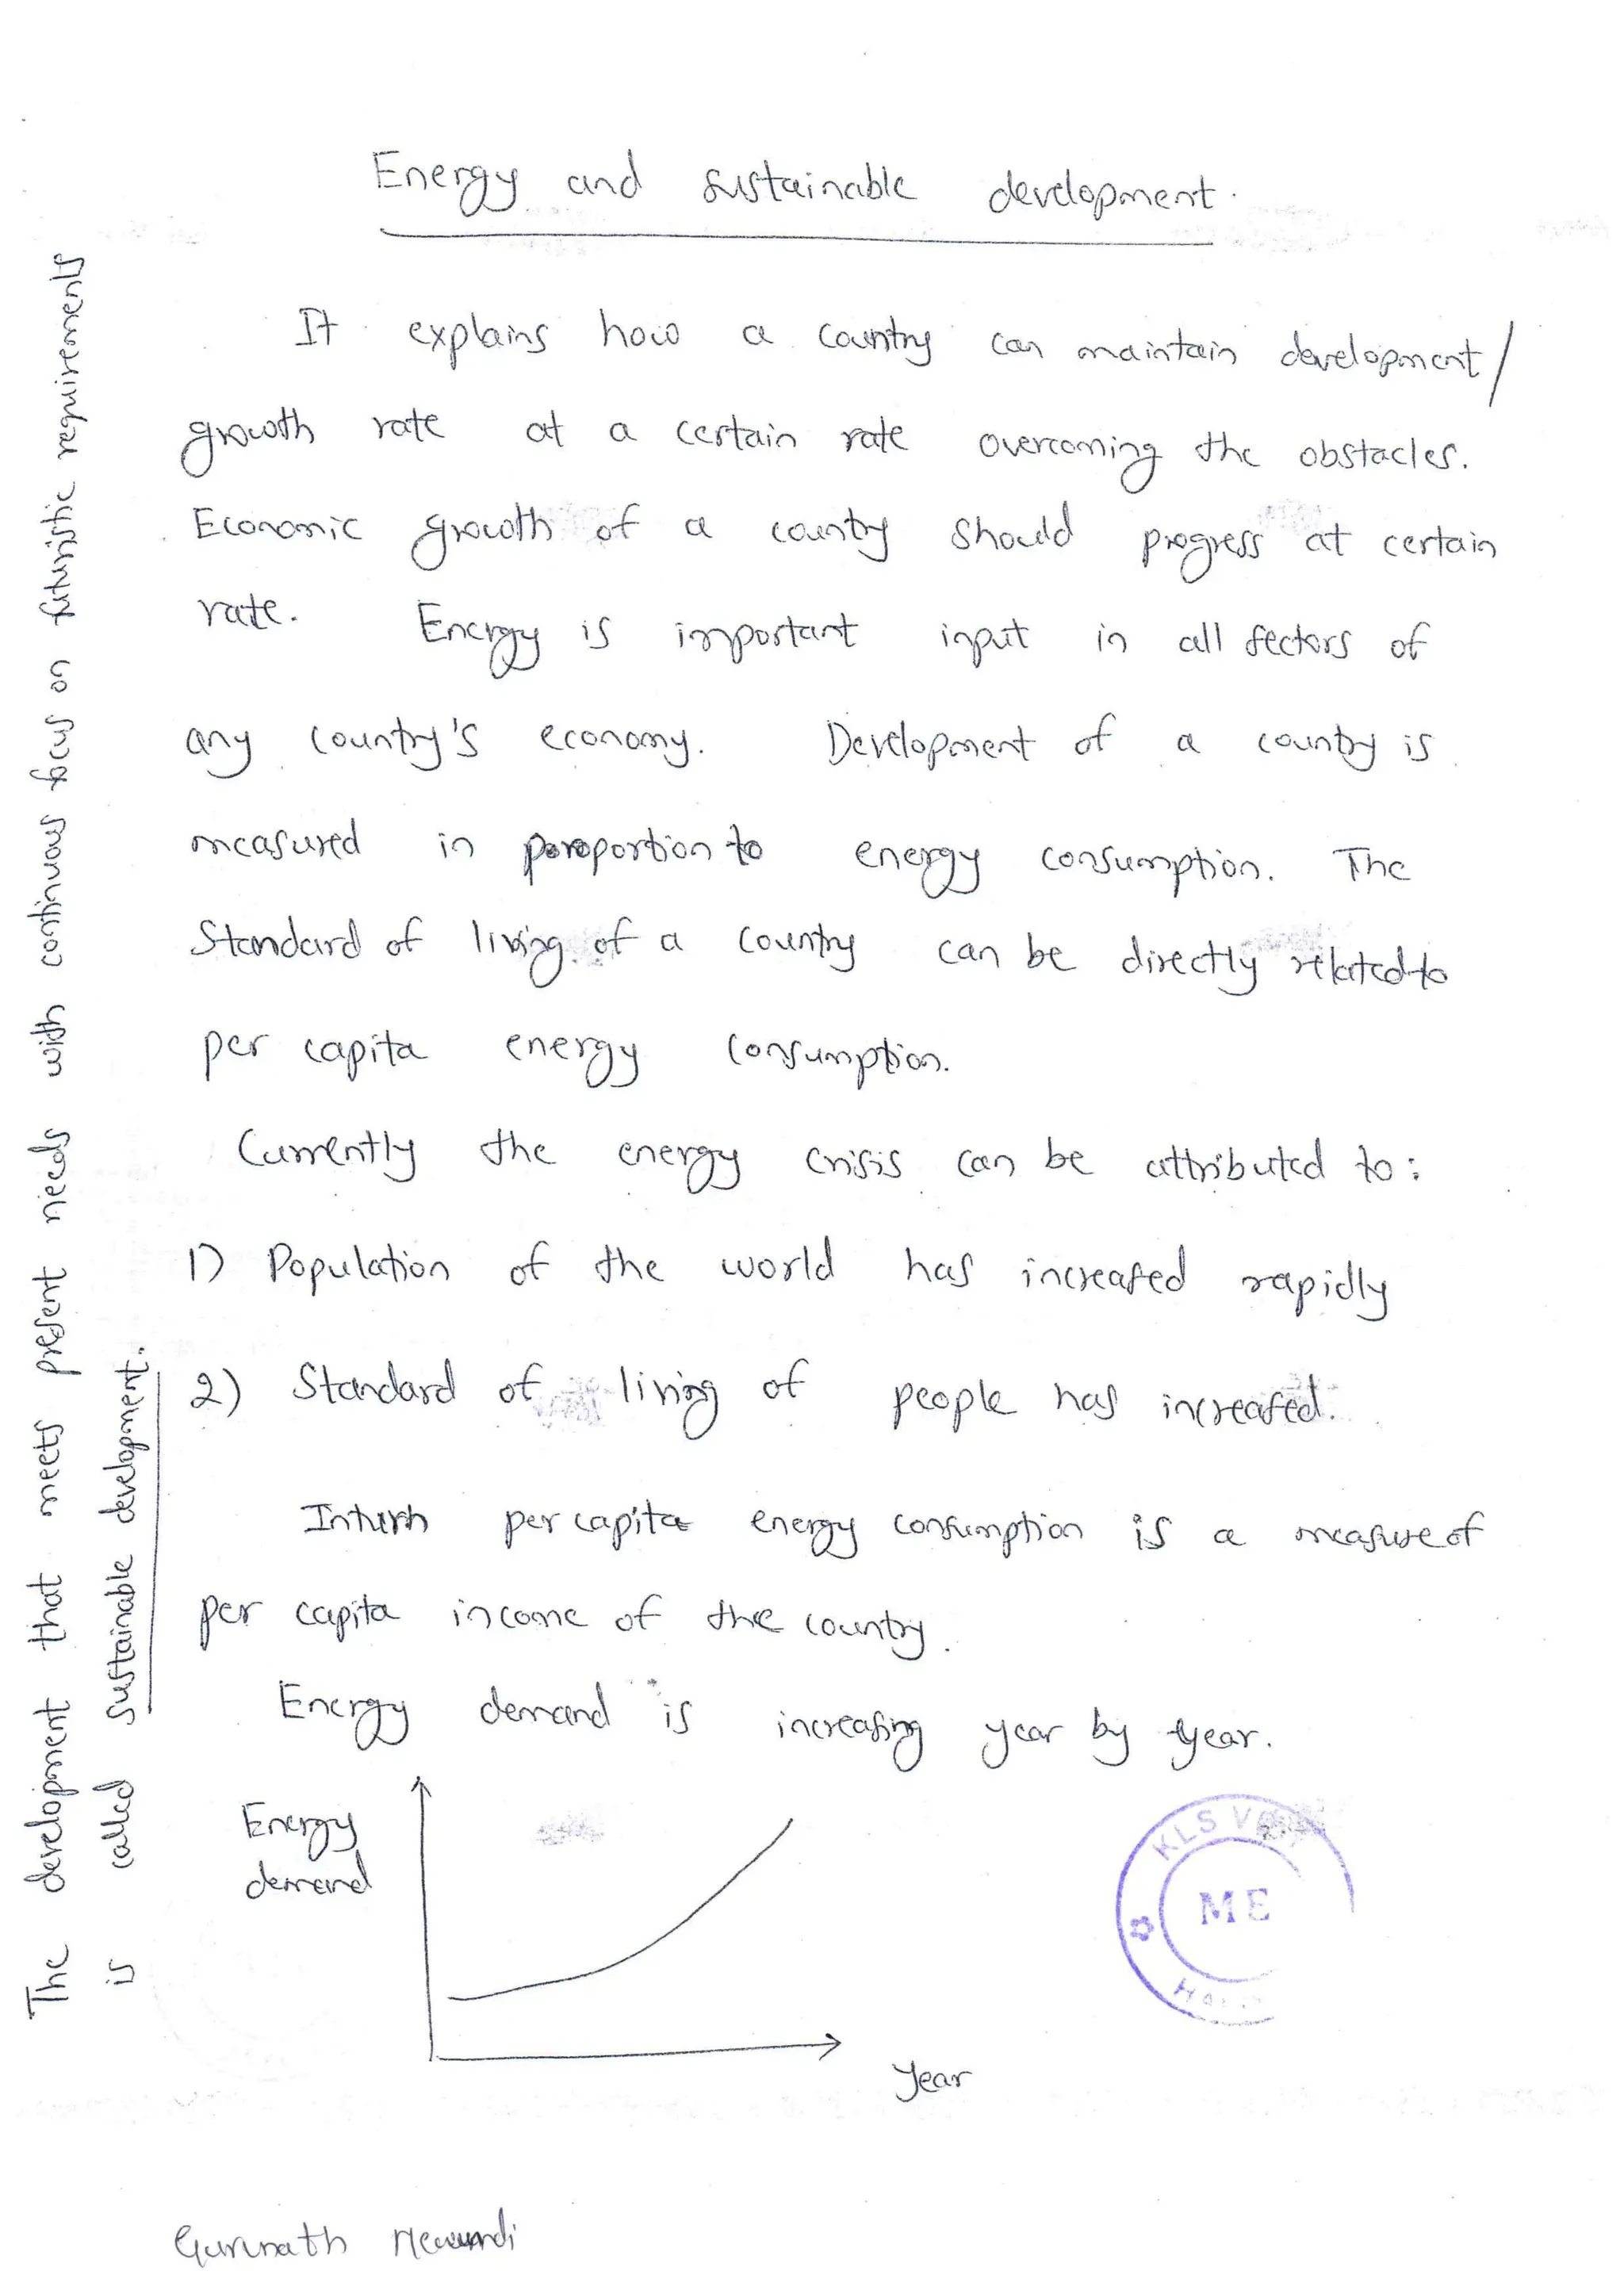 Energy and sustainable development.
It explains how a country can maintain development/
growth rate at a certain rate overcoming the obstacles.
Economic growth of a country should progress at certain
rate. Energy is important input in all sectors of
any country's economy. Development of a country is
measured in proportion to energy consumption. The
Standard of living of a country can be directly related to
per capita energy consumption.
Currently the energy crisis can be attributed to:
1) Population of the world has increased rapidly
2) Standard of living of people has increased.
Inturn per capita energy consumption is a measure of
per capita income of the country.
Energy demand is increasing year by year.
Energy
demand
Year
The development that meets present needs with continuous focus on futuristic requirements
is called sustainable development.
KLS
ME
Gururath